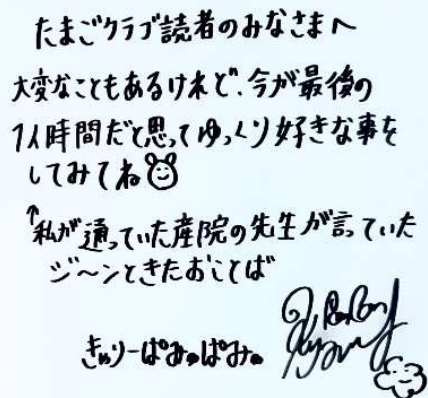 たまごクラブ読者のみなさまへ
大変なこともあるけれど、今が最後の
1人時間だと思ってゆっくり好きな事を
してみてね
↑私が通っていた産院の先生が言っていた
ジ〜ンときたおことば
きゃりーぱみゅぱみゅ